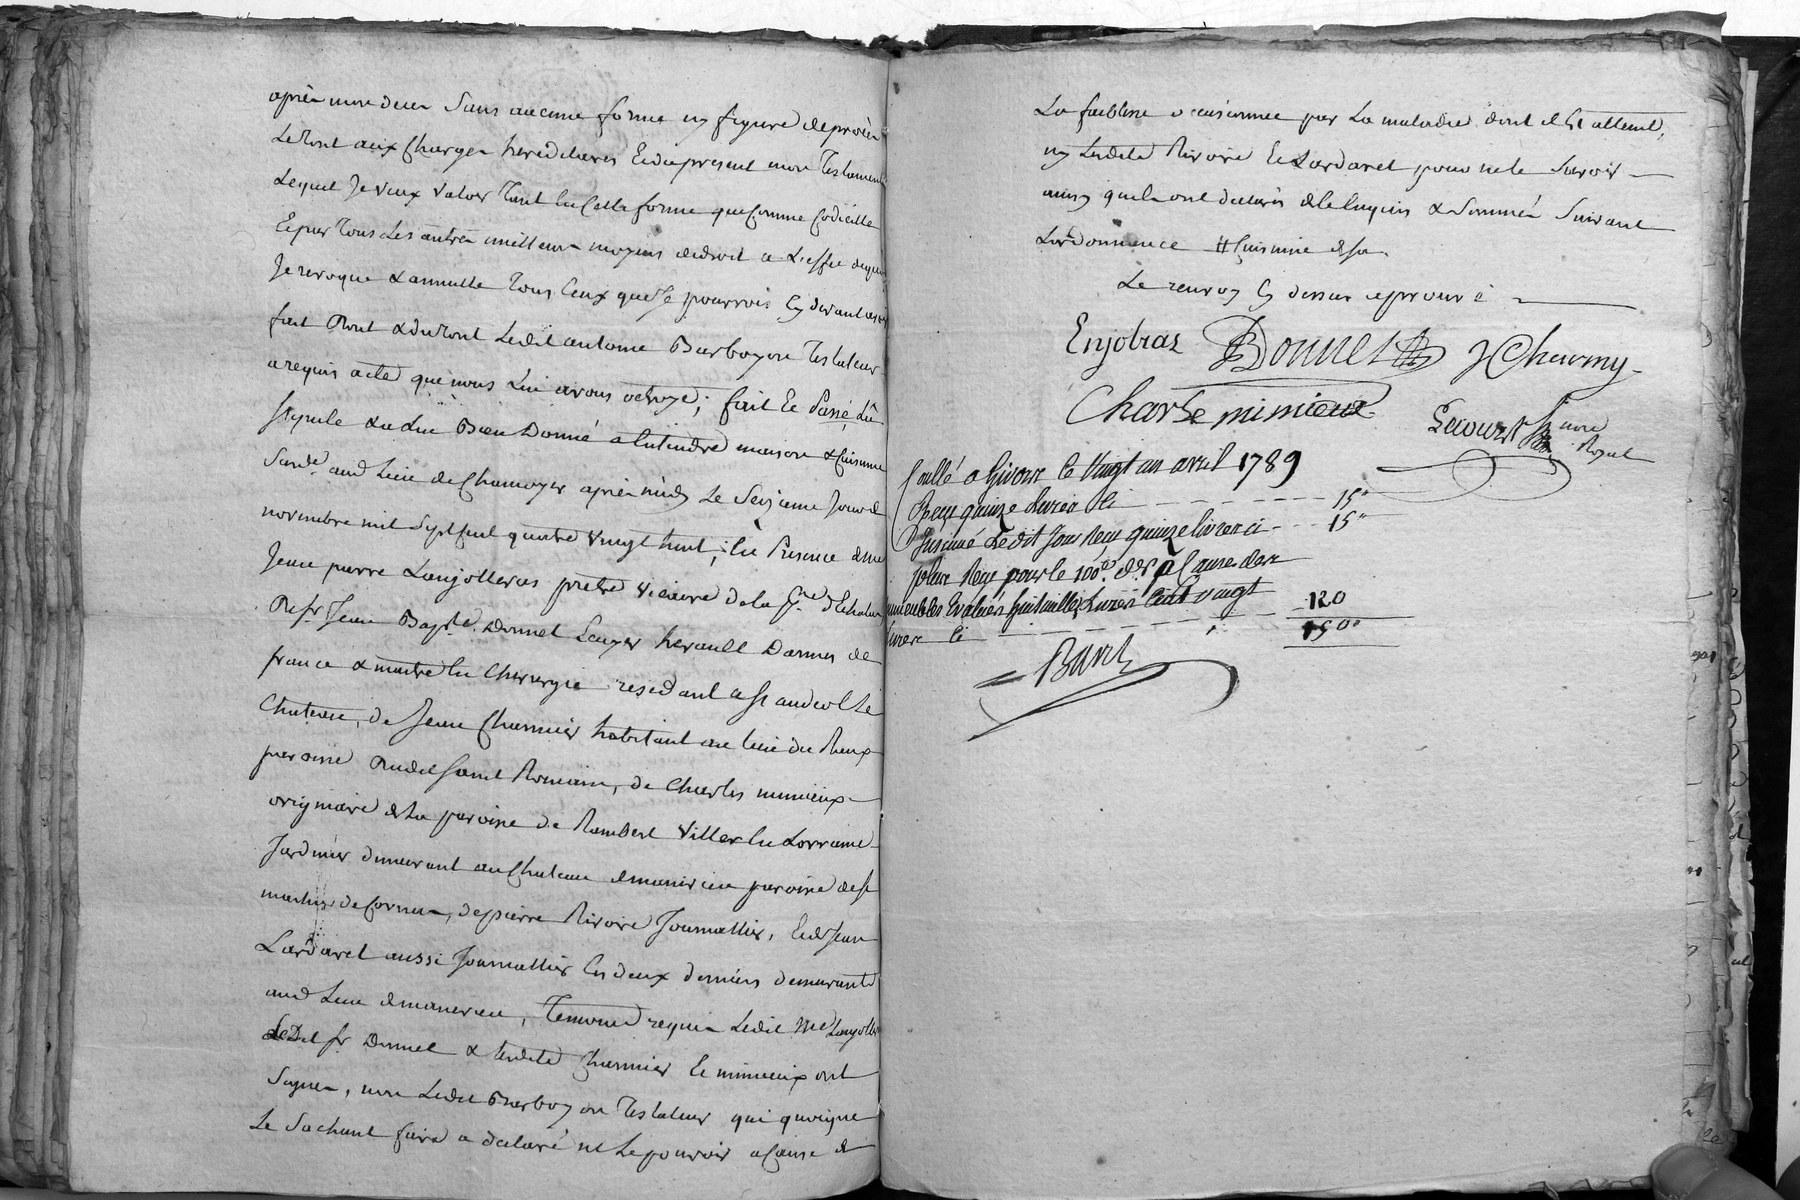 après mon deces sans aucune forme ny figure de procès
le tout aux charges hereditaires et du present mon testament
lequel je veux valoir tant en cette forme que comme codicille
et par tous les autres meilleurs moyens de droit a l'effet de quoy
je revoque & annulle tous ceux que je pourrois cy devant avoir
fait dont & du tout ledit antoine Barboyon testateur
a requis acte que nous lui avons octroyé ; fait et passé, lû
stipulé & a lui bien donné a entendre maison & cuisine
aud lieu de Chamoyer après midy le seizieme jour de
novembre mil sept cent quatre vingt huit ; en presence de me
Jean pierre Lanjolleras pretre vicaire de la
de sr Jean Bapte. Donnet Ecuyer herault Darmes de
france & maitre en chirurgie residant a st andeol le
Chateau, de Jean Charmier habitant au lieu du Reux
paroisse dudit saint Romain, de Charles mimieux
originaire de la paroisse de Rambert viller en Lorraine
Jardinier demeurant au Chateau de manevieu paroisse de st
martin de Cornas, de pierre Rivoire Journallier, et de Jean
Lardaret aussi Journallier les deux derniers demeurants
aud lieu de manevieu, temoins requis ledit Me Lanjolleras
Ledit sr Donnet & lesdits Charmier et mimieux ont
signés, non ledit Barboyon testateur qui quoique
le sachant faire a declaré ne le pouvoir a cause de
La faiblesse occasionnee par la maladie dont il est atteint,
ny lesdits Rivoire et Lardaret pour ne le savoir
ainsy quils ont declarés de ce enquis & sommés suivant
Lordonnance # cuisine
Le renvoy cy dessus aprouvé
Enjolras Donnet J Charmy
Charle mimieux
Lecourt nore Royal
Contrôllé a Givors le vingt un avril 1789
Recu quinze livres ci 15"
Insinué ledit Jour Reçu quinze livres ci 15"
plus Reçu pour le 100e. d.er a Cause des
immeubles Evalués huit mille Livres Cent vingt
livres ci 120
150"